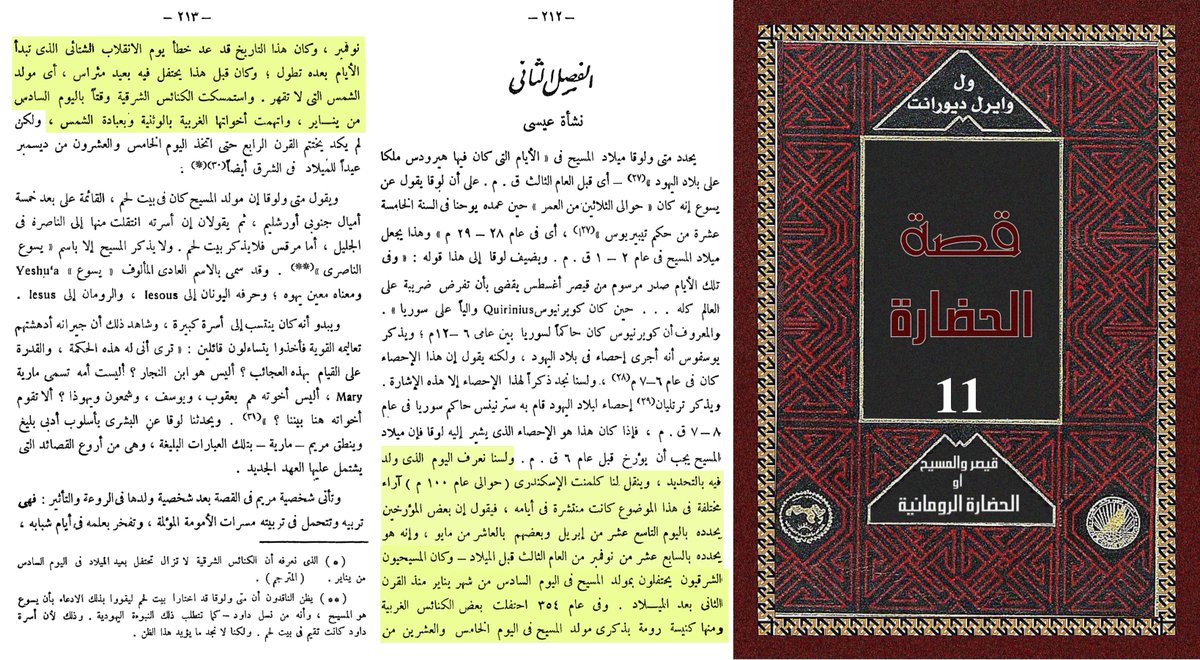 ول
وايرل ديورانت
قصة
الحضارة
11
قيصر والمسيح
أو
الحضارة الرومانية
— ٢١٢ —
الفصل الثانى
نشأة عيسى
يحدد متى ولوقا ميلاد المسيح فى « الأيام التى كان فيها هيرودس ملكا
على بلاد اليهود »(٢٧) — أى قبل العام الثالث ق . م . على أن لوقا يقول عن
يسوع إنه كان « حوالى الثلاثين من العمر » حين عمده يوحنا فى السنة الخامسة
عشرة من حكم تيبيريوس »(٢٧) ، أى فى عام ٢٨ — ٢٩ م » وهذا يجعل
ميلاد المسيح فى عام ٢ — ١ ق . م . ويضيف لوقا إلى هذا قوله : « وفى
تلك الأيام صدر مرسوم من قيصر أغسطس يقضى بأن تفرض ضريبة على
العالم كله . . . حين كان كويرنيوس Quirinius والياً على سوريا » .
والمعروف أن كويرنيوس كان حاكماً لسوريا بين عامى ٦ — ١٢م ؛ ويذكر
يوسفوس أنه أجرى إحصاء فى بلاد اليهود ، ولكنه يقول إن هذا الإحصاء
كان فى عام ٦—٧ م(٢٨) ، ولسنا نجد ذكراً لهذا الإحصاء إلا هذه الإشارة .
ويذكر ترتليان(٢٩) إحصاء لبلاد اليهود قام به سترنينس حاكم سوريا فى عام
٨—٧ ق . م ، فإذا كان هذا هو الإحصاء الذى يشير إليه لوقا فإن ميلاد
المسيح يجب أن يؤرخ قبل عام ٦ ق . م . ولسنا نعرف اليوم الذى ولد
فيه بالتحديد ، وينقل لنا كلمنت الإسكندرى ( حوالى عام ١٠٠ م ) آراء
مختلفة فى هذا الموضوع كانت منتشرة فى أيامه ، فيقول إن بعض المؤرخين
يحدده باليوم التاسع عشر من إبريل وبعضهم بالعاشر من مايو ، وإنه هو
يحدده بالسابع عشر من نوفمبر من العام الثالث قبل الميلاد — وكان المسيحيون
الشرقيون يحتفلون بمولد المسيح فى اليوم السادس من شهر يناير منذ القرن
الثانى بعد الميلاد . وفى عام ٣٥٤ احتفلت بعض الكنائس الغربية
ومنها كنيسة رومة بذكرى مولد المسيح فى اليوم الخامس والعشرين من
— ٢١٣ —
نوفمبر ، وكان هذا التاريخ قد عد خطأ يوم الانقلاب الشتائى الذى تبدأ
الأيام بعده تطول ؛ وكان قبل هذا يحتفل فيه بعيد مثراس ، أى مولد
الشمس التى لا تقهر . واستمسكت الكنائس الشرقية وقتاً باليوم السادس
من ينـــاير ، واتهمت أخواتها الغربية بالوثنية وبعبادة الشمس ، ولكن
لم يكد يختتم القرن الرابع حتى اتخذ اليوم الخامس والعشرون من ديسمبر
عيداً للميلاد فى الشرق أيضاً(٣٠)(*) .
ويقول متى ولوقا إن مولد المسيح كان فى بيت لحم ، القائمة على بعد خمسة
أميال جنوبى أورشليم ، ثم يقولان إن أسرته انتقلت منها إلى الناصرة فى
الجليل ، أما مرقس فلا يذكر بيت لحم . ولا يذكر المسيح إلا باسم « يسوع
الناصرى »(**) . وقد سمى بالاسم العادى المألوف « يسوع » Yeshu‘a
ومعناه معين يهوه ؛ وحرفه اليونان إلى Iesous ، والرومان إلى Iesus .
ويبدو أنه كان ينتسب إلى أسرة كبيرة ، وشاهد ذلك أن جيرانه أدهشتهم
تعاليمه القوية فأخذوا يتساءلون قائلين : « ترى أنى له هذه الحكمة ، والقدرة
على القيام بهذه العجائب ؟ أليس هو ابن النجار ؟ أليست أمه تسمى مارية
Mary ، أليس أخوته هم يعقوب ، ويوسف ، وشمعون ويهوذا ؟ ألا تقوم
أخواته هنا بيننا ؟ »(٣١) . ويحدثنا لوقا عن البشرى بأسلوب أدبى بليغ
وينطق مريم — مارية — بتلك العبارات البليغة ، وهى من أروع القصائد التى
يشتمل عليها العهد الجديد .
وتأتى شخصية مريم فى القصة بعد شخصية ولدها فى الروعة والتأثير : فهى
تربيه وتتحمل فى تربيته مسرات الأمومة المؤلمة ، وتفخر بعلمه فى أيام شبابه ،
( * ) الذى نعرفه أن الكنائس الشرقية لا تزال تحتفل بعيد الميلاد فى اليوم السادس
من يناير . ( المترجم ) .
( ** ) يظن الناقدون أن متى ولوقا قد اختارا بيت لحم ليقووا بذلك الادعاء بأن يسوع
هو المسيح ، وأنه من نسل داود — كما تتطلب ذلك النبوءة اليهودية . وذلك لأن أسرة
داود كانت تقيم فى بيت لحم . ولكنا لا نجد ما يؤيد هذا الظن .